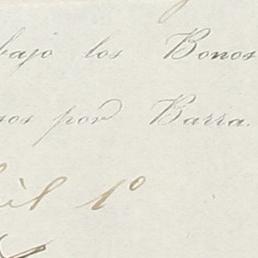 bajo los Bonos
sos por Barra.
il 1º